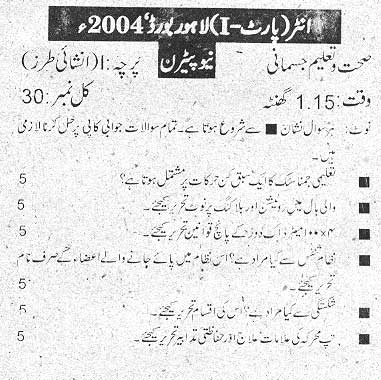 انٹر (پارٹ-I) لاہور بورڈ، 2004ء
صحت و تعلیم جسمانی نیو پیٹرن پرچہ: I (انشائی طرز)
وقت: 1.15 گھنٹہ کل نمبر: 30
نوٹ: ہر سوال نشان ■ سے شروع ہوتا ہے۔ تمام سوالات جوابی کاپی پر حل کرنا لازمی
ہیں۔
■ تعلیمی جمناسٹک کا ایک سبق کن حرکات پر مشتمل ہوتا ہے؟ 5
■ والی بال میں روٹیشن اور بلاکنگ پر نوٹ تحریر کیجئے۔ 5
■ ۴×۱۰۰ میٹر ڈاک دوڑ کے پانچ قوانین تحریر کیجئے۔ 5
■ نظام تنفس سے کیا مراد ہے؟ اس نظام میں پائے جانے والے اعضاء کے صرف نام
تحریر کیجئے۔ 5
■ شکستگی سے کیا مراد ہے؟ اس کی اقسام تحریر کیجئے۔ 5
■ تپ محرکہ کی علامات علاج اور حفاظتی تدابیر تحریر کیجئے۔ 5